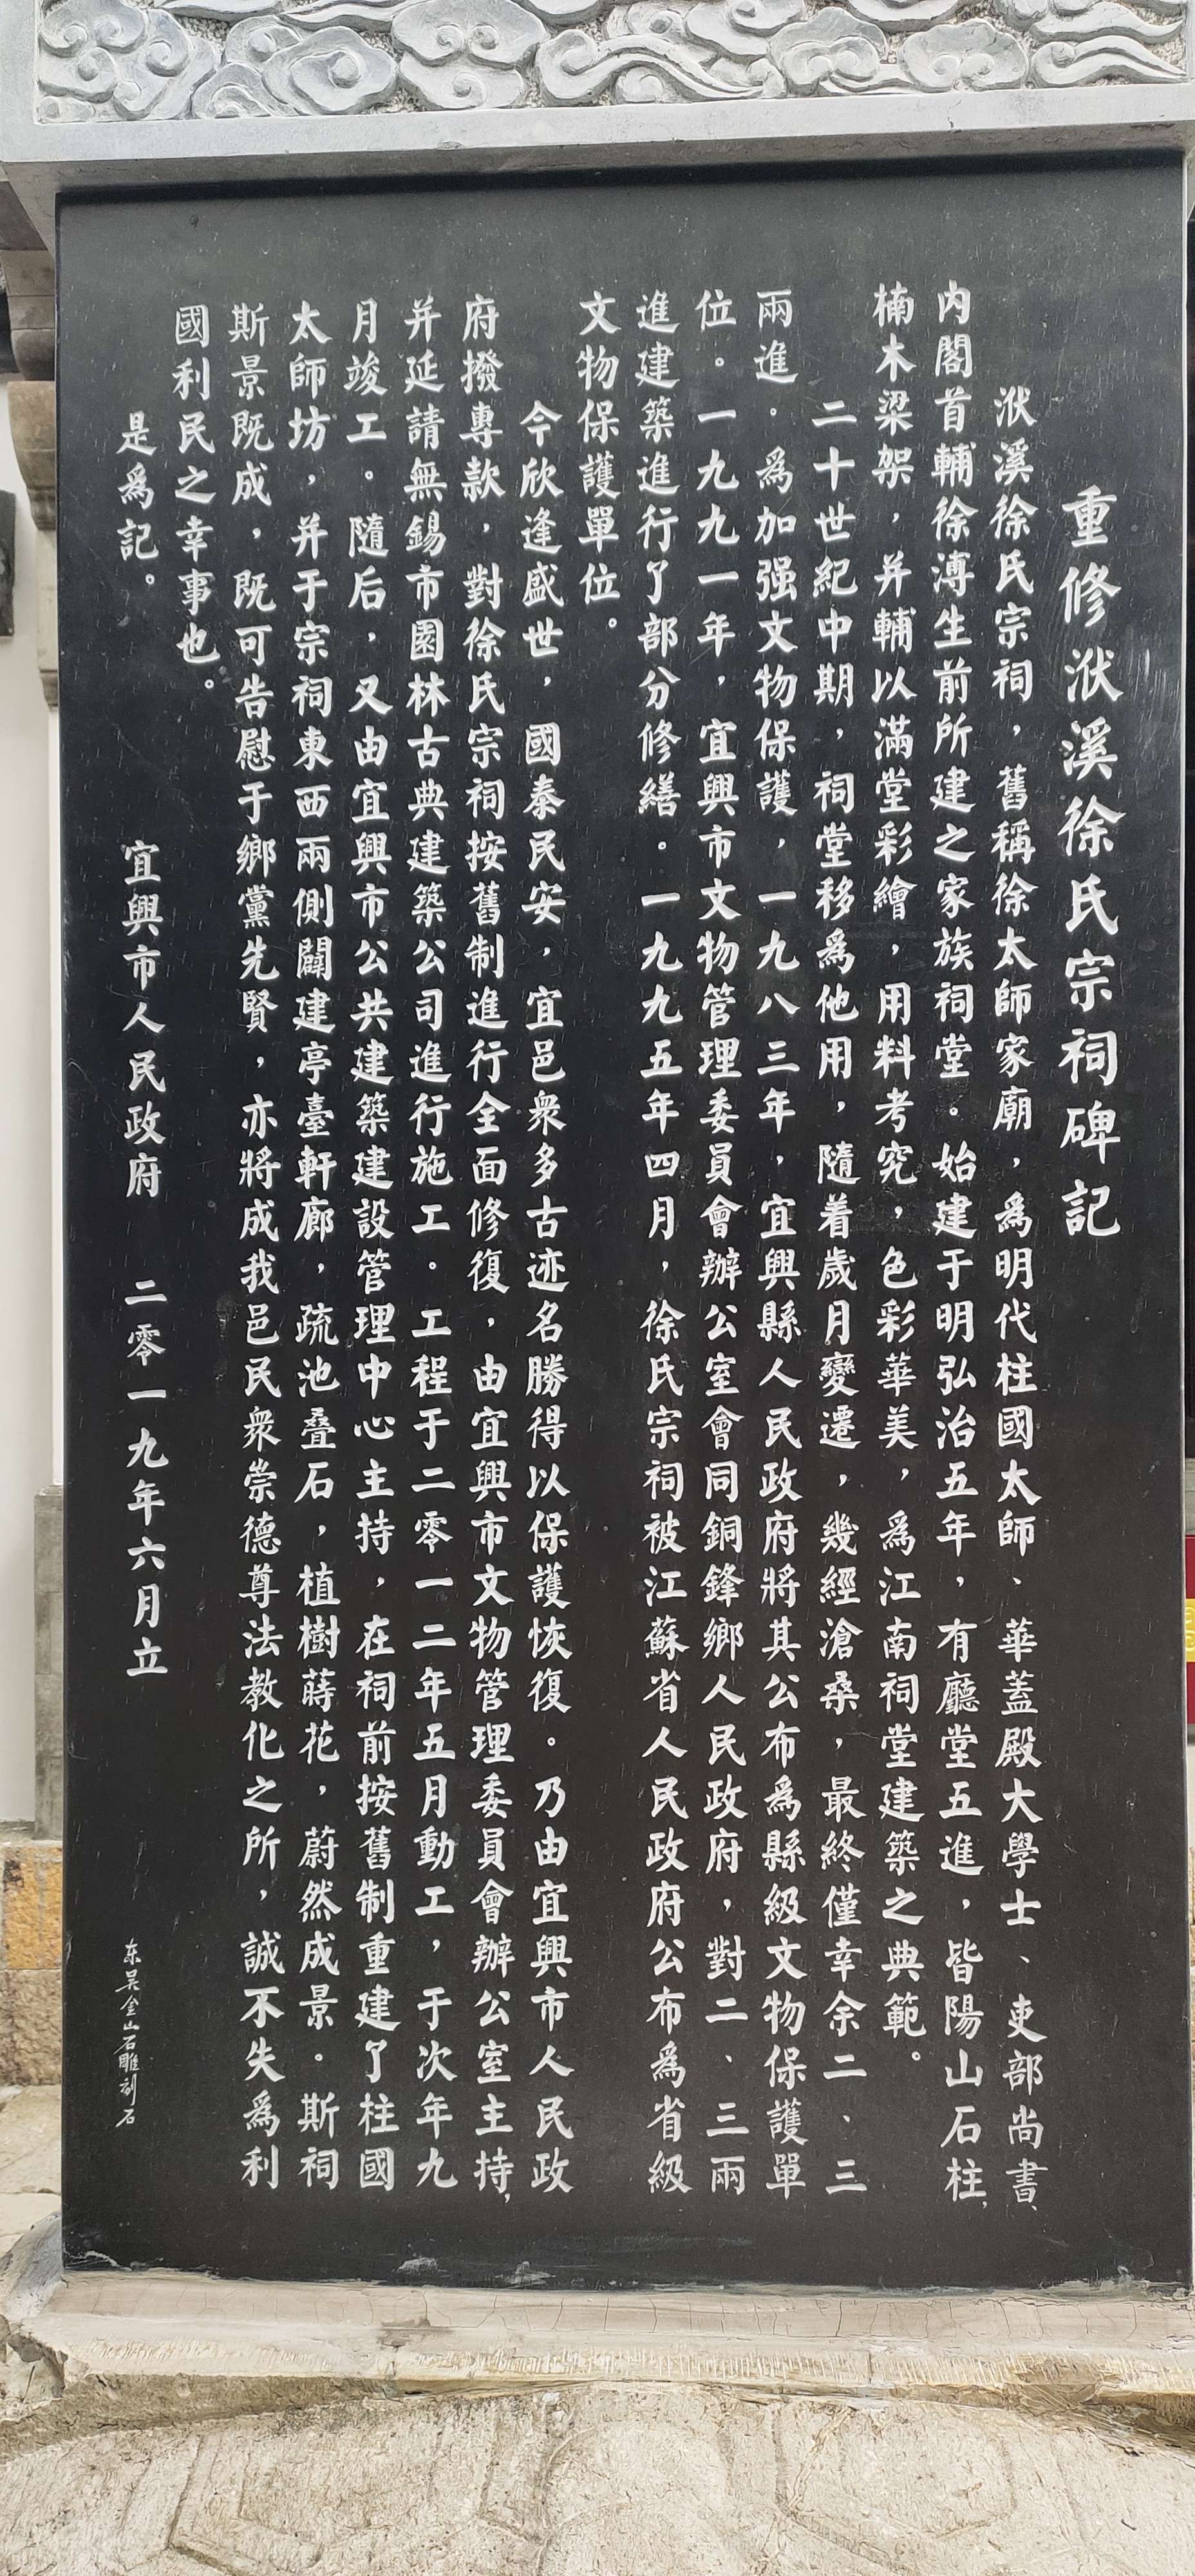 重修洑溪徐氏宗祠碑記
洑溪徐氏宗祠，舊稱徐太師家廟，爲明代柱國太師、華蓋殿大學士、吏部尚書、
内閣首輔徐溥生前所建之家族祠堂。始建于明弘治五年，有廳堂五進，皆陽山石柱，
楠木梁架，并輔以滿堂彩繪，用料考究，色彩華美，爲江南祠堂建築之典範。
二十世紀中期，祠堂移爲他用，隨着歲月變遷，幾經滄桑，最終僅幸余二、三
兩進。爲加强文物保護，一九八三年，宜興縣人民政府將其公布爲縣級文物保護單
位。一九九一年，宜興市文物管理委員會辦公室會同銅鋒鄉人民政府，對二、三兩
進建築進行了部分修繕。一九九五年四月，徐氏宗祠被江蘇省人民政府公布爲省級
文物保護單位。
今欣逢盛世，國泰民安，宜邑衆多古迹名勝得以保護恢復。乃由宜興市人民政
府撥專款，對徐氏宗祠按舊制進行全面修復，由宜興市文物管理委員會辦公室主持，
并延請無錫市園林古典建築公司進行施工。工程于二零一二年五月動工，于次年九
月竣工。隨后，又由宜興市公共建築建設管理中心主持，在祠前按舊制重建了柱國
太師坊，并于宗祠東西兩側闢建亭臺軒廊，疏池叠石，植樹蒔花，蔚然成景。斯祠
斯景既成，既可告慰于鄉黨先賢，亦將成我邑民衆崇德尊法教化之所，誠不失爲利
國利民之幸事也。
是爲記。
宜興市人民政府 二零一九年六月立
东吴金山石雕刻石